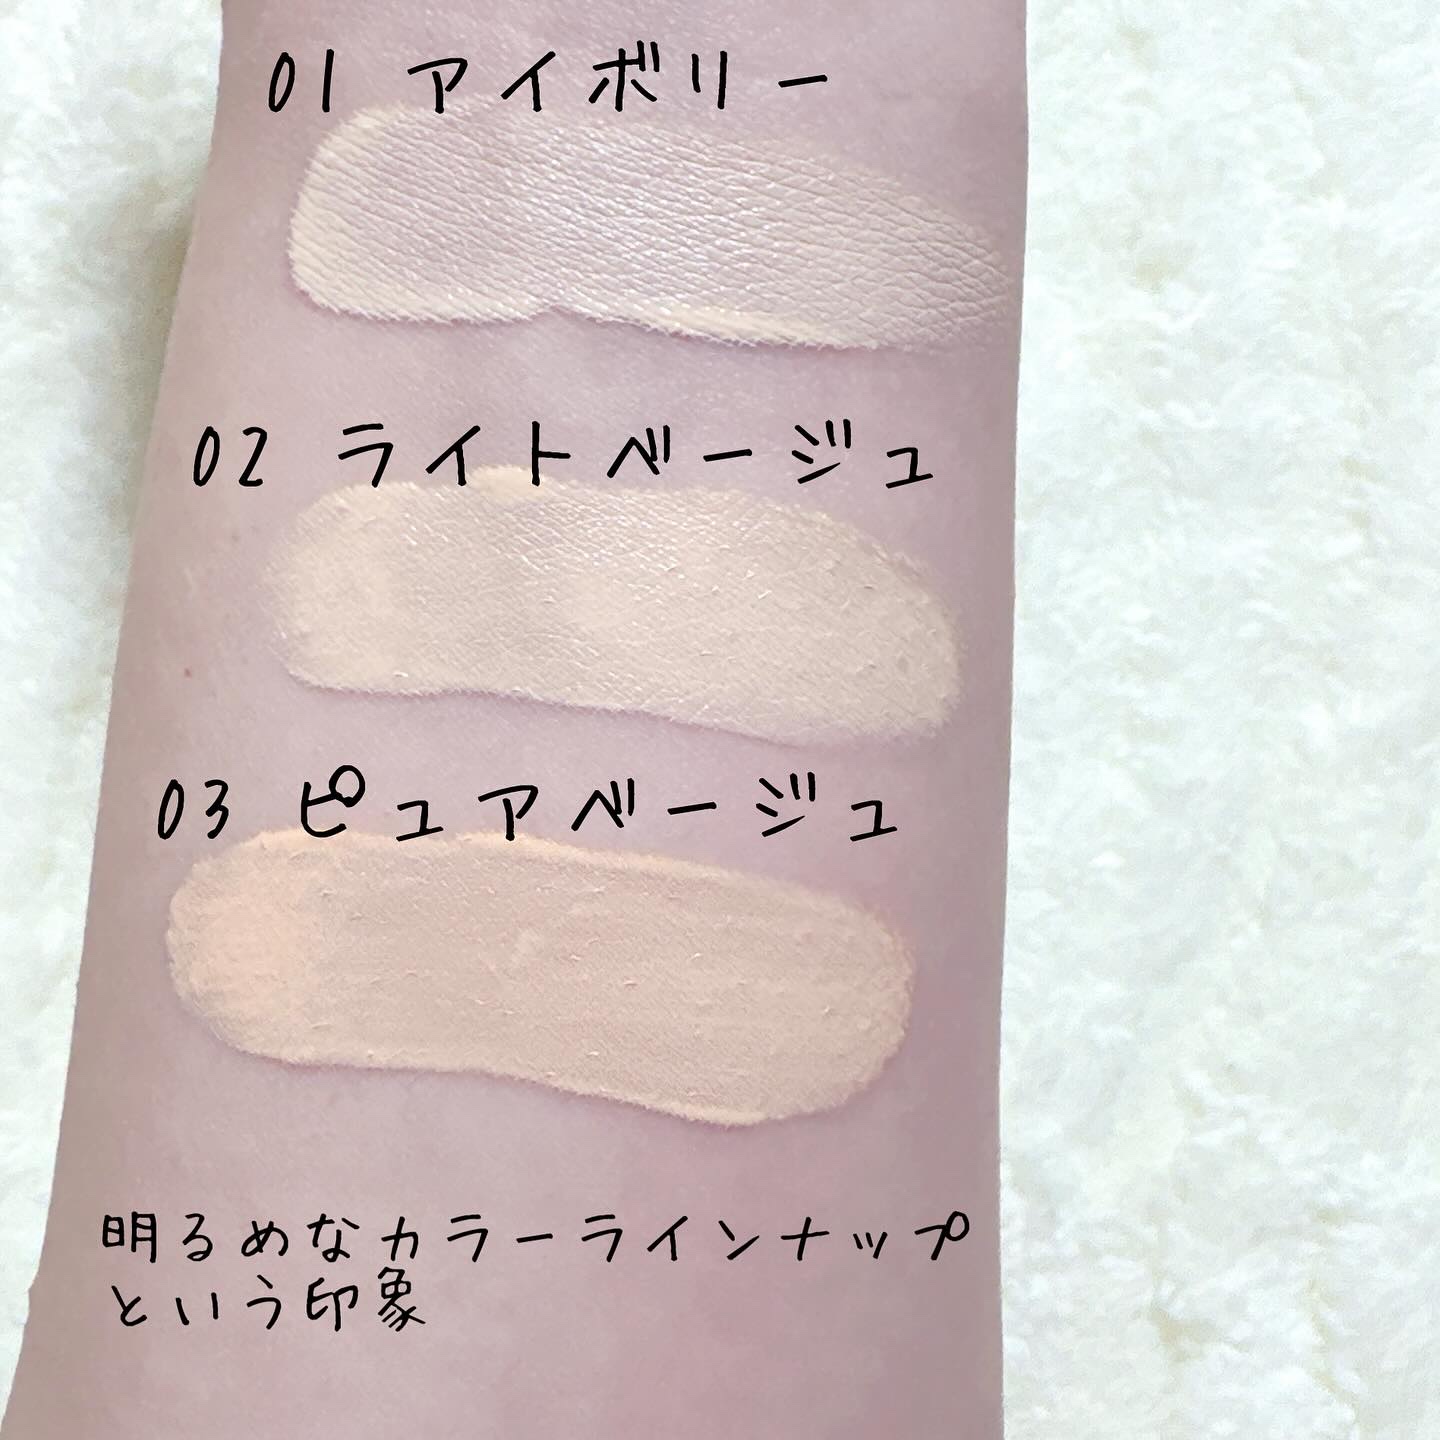 01 アイボリー
02 ライトベージュ
03 ピュアベージュ
明るめなカラーラインナップ
という印象